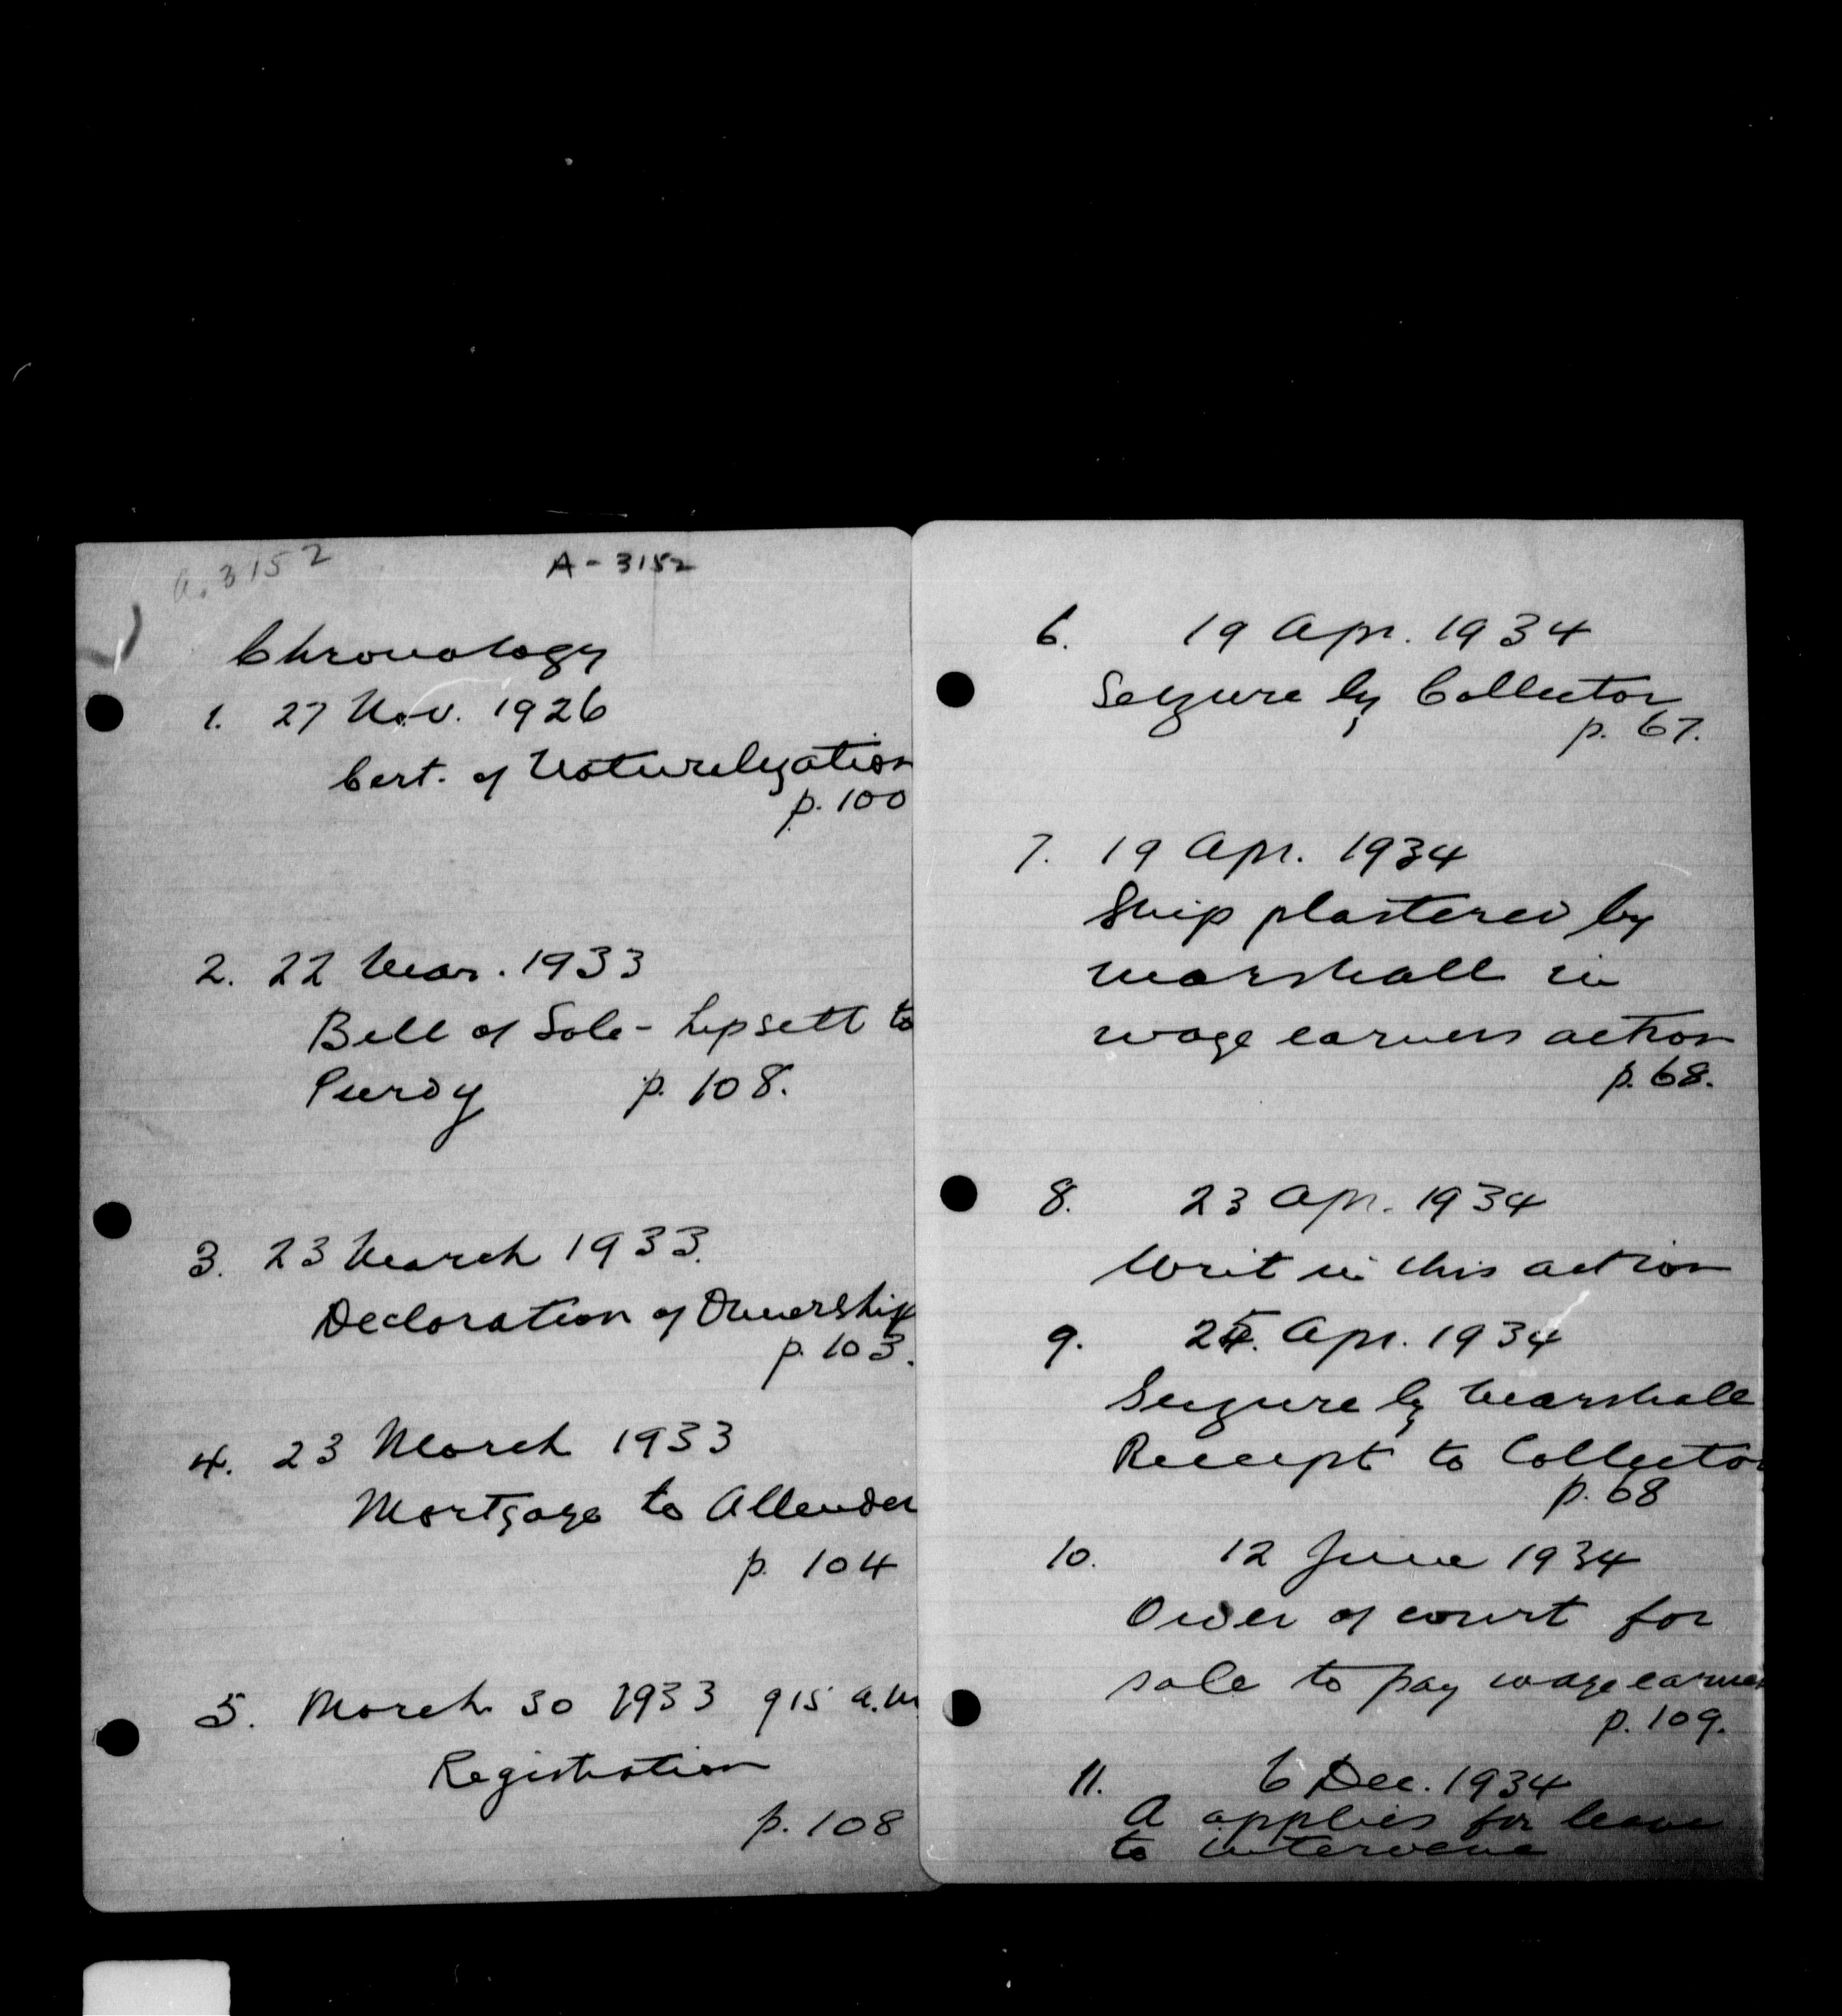 a. 3152
A-3152
Chronology
1. 27 Nov. 1926
Cert. of Naturalization
p. 100
2. 22 Mar. 1933
Bill of Sale - Lipsett to
Purdy p. 108.
3. 23 March 1933.
Declaration of Ownership
p. 103.
4. 23 March 1933
Mortgage to Allender
p. 104
5. March 30 1933 915 a.m
Registration
p. 108
6. 19 Apr. 1934
Seizure by Collector
p. 67.
7. 19 Apr. 1934
Ship plastered by
marshall in
wage earners action
p. 68.
8. 23 Apr. 1934
Writ in this action
9. 25. Apr. 1934
Seizure by Marshall
Receipt to Collector
p. 68
10. 12 June 1934
Order of court for
sale to pay wage earners
p. 109.
11. 6 Dec. 1934
A applies for leave
to intervene